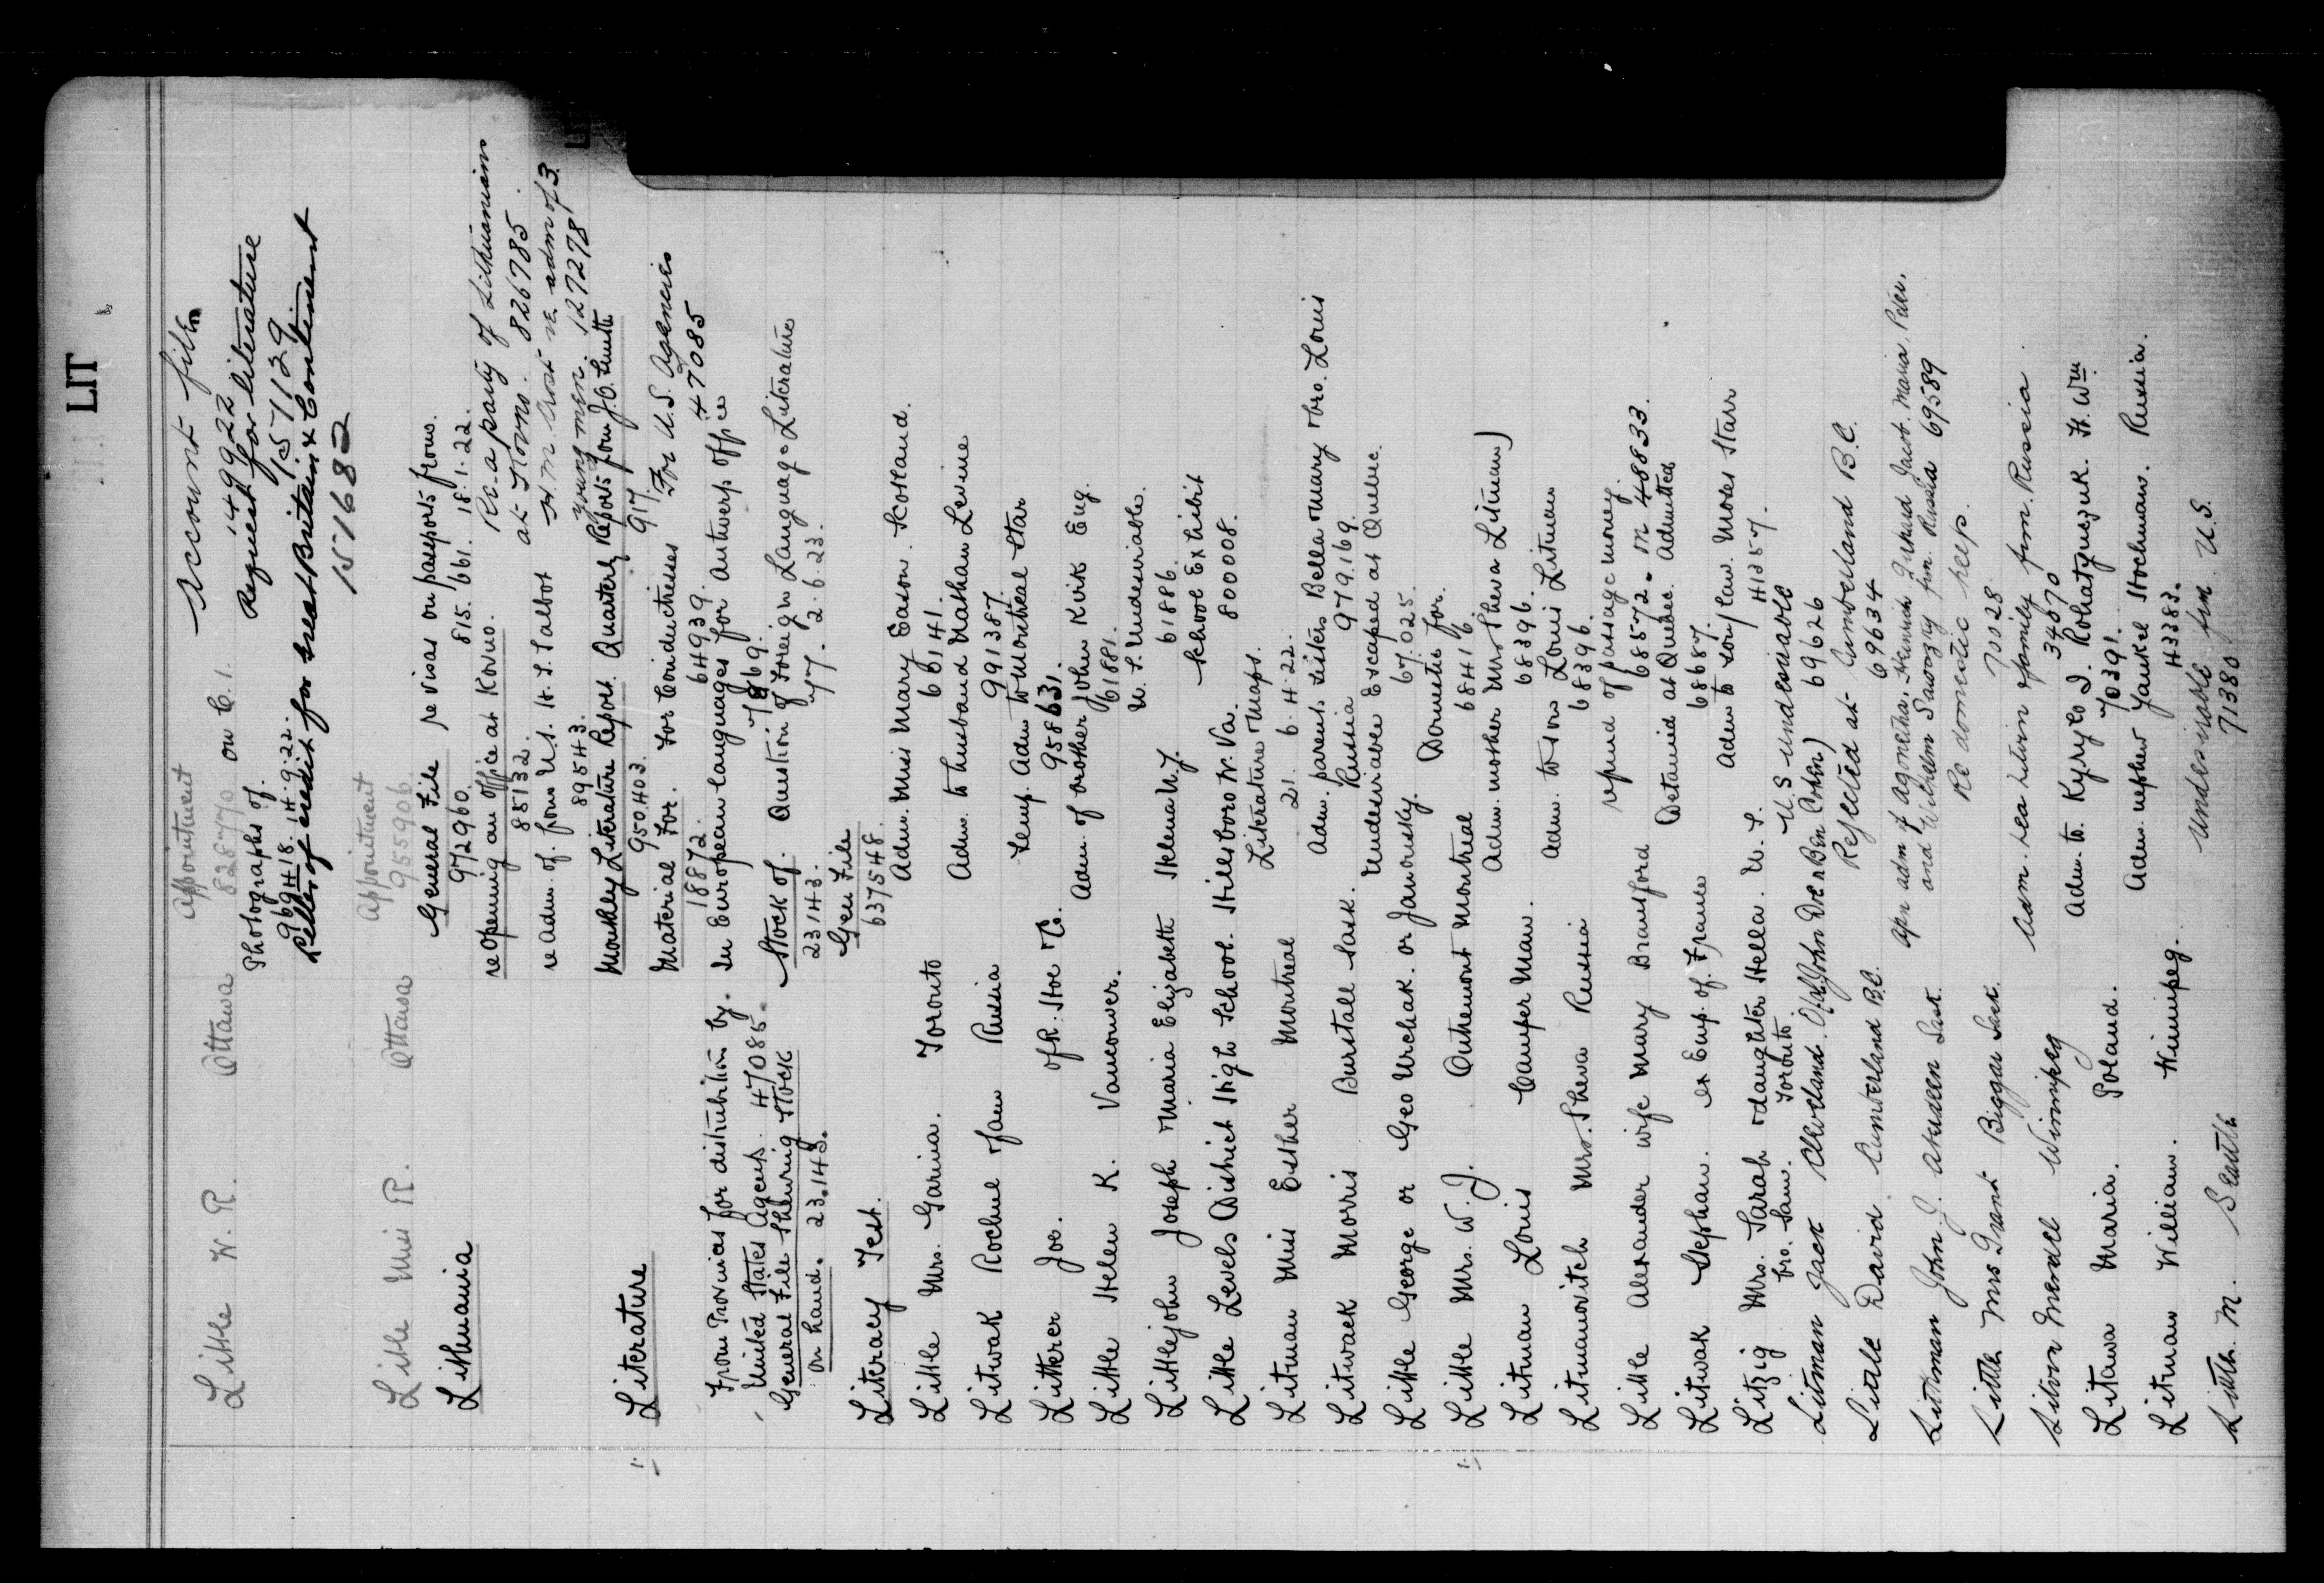 LIT
Account file
149922
Little W. R. Ottawa Appointment
828770 on C.1. Request for literature
157129
Photographs of.
969418. 14.9.22.
Letter of credit for Great Britain & Continent
157682
Little Miss R. Ottawa Appointment
955906
Lithuania General File re visas on passports from.
972960. 815.661. 18.1.22.
re opening an office at Kovno. Re- a party of Lithuanians
85132. at Kovno. 826785.
re Adm. of. from U.S. H. S. Talbot re adm of 3
89543. young men. 127278
Literature Monthly Literature Report. Quarterly Reports from J.O. Smith
950.403. 917.
Material For. For Conductresses For U.S. Agencies
18872. 64939. 47085
From Provinces for distribution by. In European languages for Antwerp office
United States Agents. 47085.
General File Showing Stock Stock of. Question of Foreign Language Literature
on hand. 23.143. 23143. 2.6.23.
Gen File
637548.
Literacy Test.
Little Mrs. Toronto Adm. Miss Mary Eason. Scotland.
66141.
Litwak Rochel & fam Russia Adm. to husband Nathan Levine
991387.
Litterer Joe. Temp. Adm to Montreal Star
958631.
Little Helen K. Vancouver. Adm. of brother John Kirk Eng.
61881.
Littlejohn Joseph & Maria Elizabeth Helena N.Y. U.S. Undesirable.
61886.
Little Levels District High School. Hillsboro W. Va. School Exhibit
800008.
Litman Miss Esther Montreal Literature & Maps.
21. 6.4.22.
Litwack Morris Burstall Sask. Adm. parents sisters Bella & Mary & bro. Louis
Russia 979.169.
Little George or Geo Urchak. or Janowsky. Undesirable Escaped at Quebec.
67.025.
Little Mrs. W. J. Outremont Montreal Domestic for.
68416.
Litman Louis Camper Man. Adm. mother Mrs Sheva Litman
68396.
Litmanovitch Mrs. Sheva Russia Adm. to son Louis Litman
68396.
Little Alexander wife Mary Brantford refund of passage money.
68572. M 48833.
Litwak Stephan. ex Emp. of France Detained at Quebec. Admitted
68687.
Litzig Mrs. Sarah & daughter Hella. U.S. Adm to son/law. Moses Starr
bro. Sam. Toronto 41257.
Litman Jack Cleveland. O. (al. John Doe & Ben Cohn) U.S. undesirable
69626
Little David Cumberland B.C. Rejected at Cumberland B.C.
69634
Littman John J. Sask. Apn adm of Agnetha, Heinrich Gerhard Jacob. Maria, Peter,
and Wilhelm Sawazky frm. Russia 69589
Little Mrs Grant Biggar Sask. Re domestic help.
70028.
Winnipeg Adm. & family frm. Russia.
34870
Litawa Maria. Poland. Adm. to Kyrylo D. Rohatynszuk. Ft. Wm
70391.
Litman William. Winnipeg. Adm. nephew Yankel Stochman. Russia.
43383.
Little. M. Seattle Undesirable frm U.S.
71380